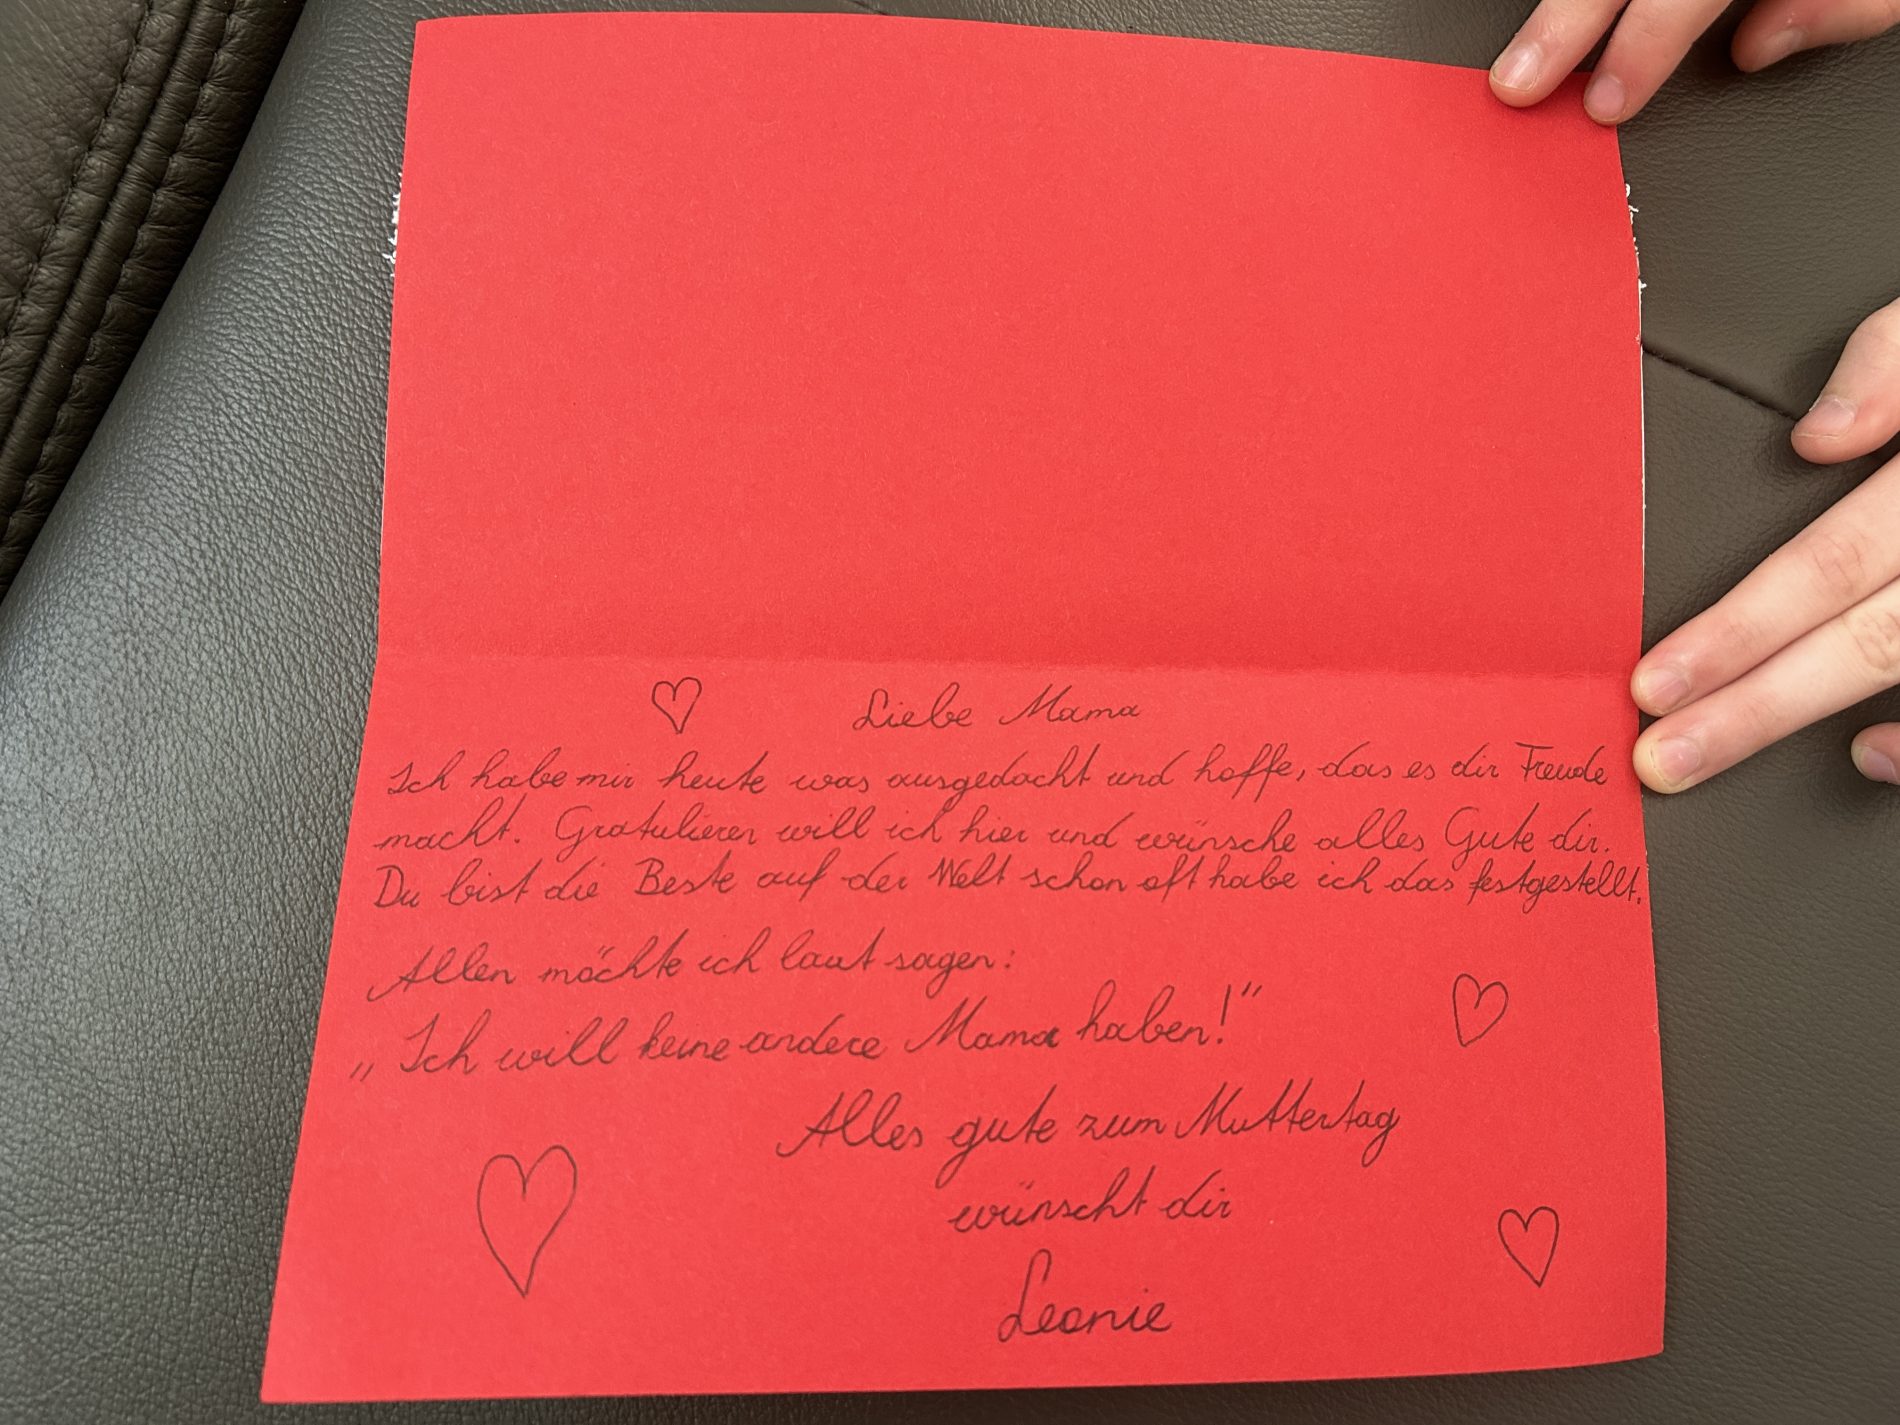 Liebe Mama
Ich habe mir heute was ausgedacht und hoffe, das es dir Freude
macht. Gratulieren will ich hier und wünsche alles Gute dir.
Du bist die Beste auf der Welt schon oft habe ich das festgestellt.
Allen möchte ich laut sagen:
„Ich will keine andere Mama haben!“
Alles gute zum Muttertag
wünscht dir
Leonie